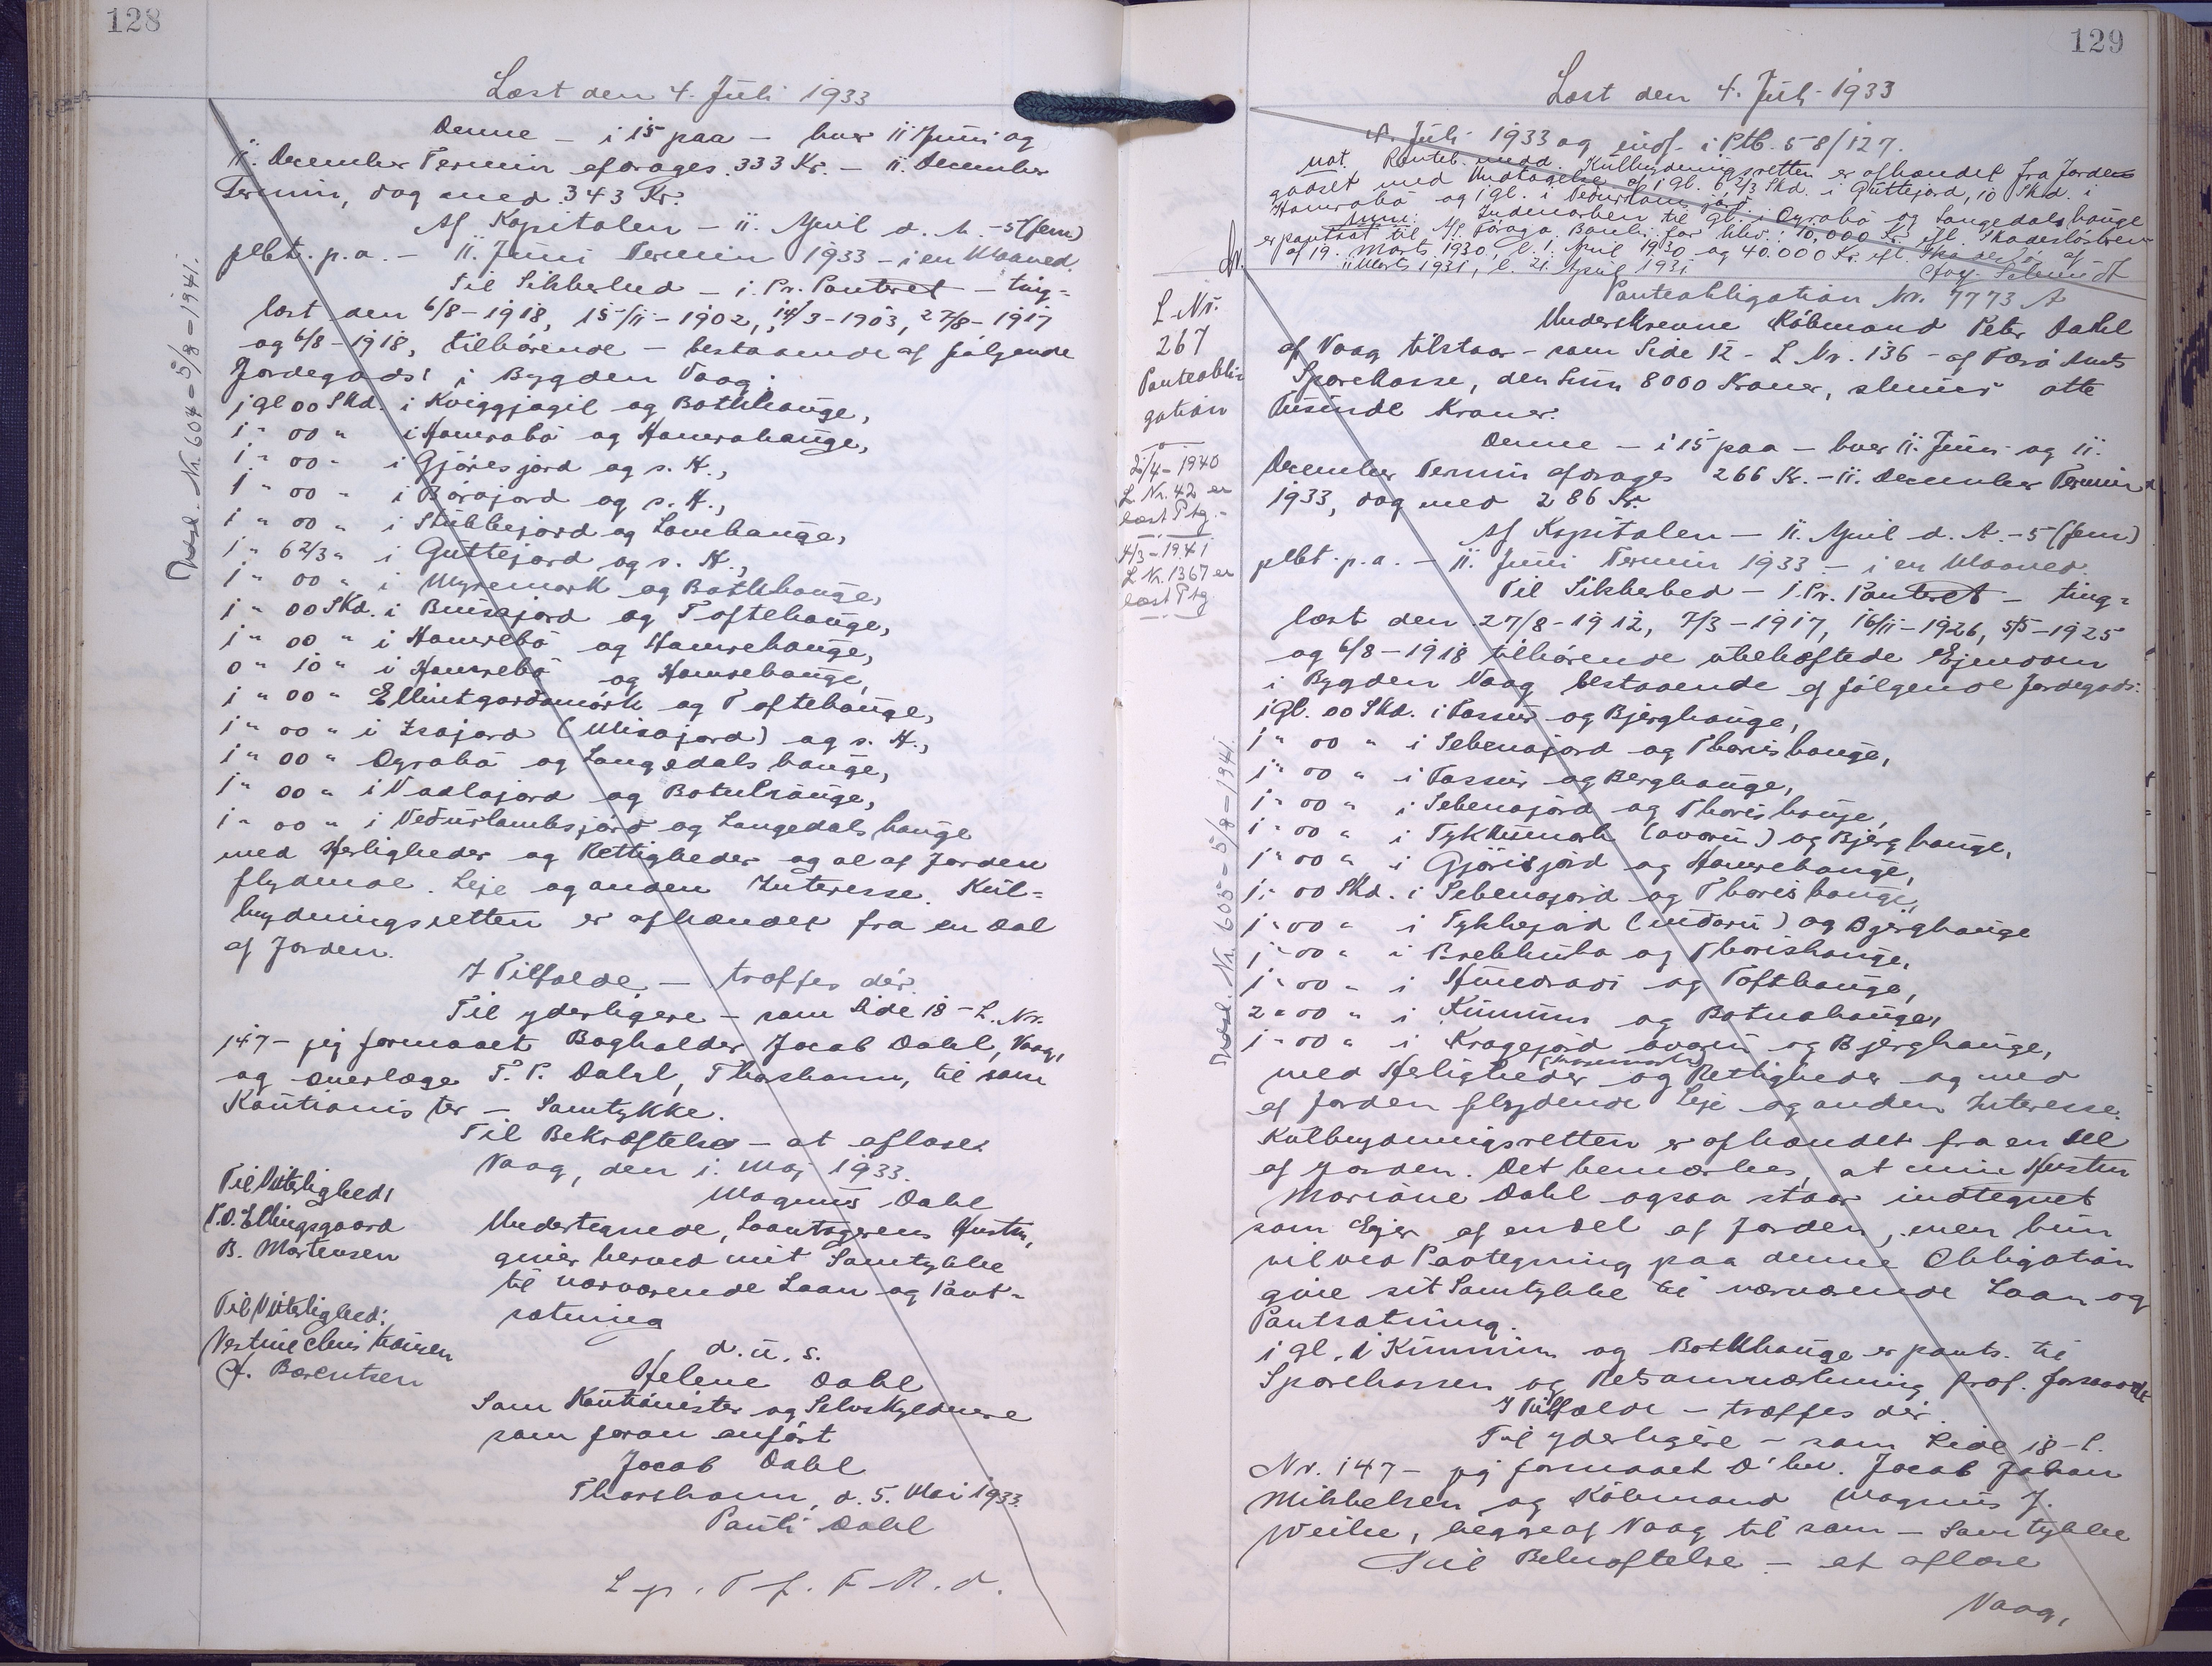 128
Læst den 4. Juli 1933
Denne – i 15 paa – hver 11 Juni og
11. December Termin afdrages 333 Kr. – 11. December
Termin, dog med 343 Kr.
Af Kapitalen – 11. April d. A. – 5 (fem)
pCt. p. a. – 11. Juni Termin 1933 – i en Maaned.
Til Sikkerhed – 1. Pr. Panteret – ting-
læst den 6/8-1918, 15/11-1902, 14/3-1903, 27/8-1917
og 6/8-1918, tilhørende – bestaaende af følgende
Jordegods i Bygden Vaag:
1 gl 00 Skd. i Kviggjagil og Bothhauge,
1 " 00 " i Hamrabø og Hamrahauge,
1 " 00 " i Gjøresjord og s. H.,
1 " 00 " i Bárajord og s. H.,
1 " 00 " i Stubbejord og Lambhauge,
1 " 6 2/3 " i Guttejord og s. H.,
1 " 00 " i Myremørk og Bothhauge,
1 " 00 Skd. i Buisajord og Toftehauge,
1 " 00 " i Hamrebø og Hamrehauge,
0 " 10 " i Hamrebø og Hamrehauge,
1 " 00 " Ellintgardsmørk og Toftehauge,
1 " 00 " i Isajord (Misajord) og s. H.,
1 " 00 " Oyrabø og Langedalshauge,
1 " 00 " i Vadlajord og Botnhauge,
1 " 00 " i Veðurlambsjørð og Langedalshauge
med Herligheder og Rettigheder og al af Jorden
flydende Leje og anden Interesse. Kul-
brydningsretten er afhændet fra en Del
af Jorden.
I Tilfælde – træffes dér.
Til yderligere – som Side 18 – L. Nr.
147 – jeg formaaet Bogholder Jacob Dahl, Vaag,
og Overlæge P. P. Dahl, Thorshavn, til som
Kautionister – Samtykke.
Til Bekræftelse – at aflæse.
Vaag, den 1. Maj 1933.
Magnus Dahl
Til Vitterlighed:
P. O. Ellingsgaard
B. Mortensen
Undertegnede, Laantagerens Hustru,
giver herved mit Samtykke
til nærværende Laan og Pant-
sætning
d. u. s.
Helene Dahl
Til Vitterlighed:
J. Berentsen
Som Kautionister og Selvskyldnere
som foran anført
Jacob Dahl
Thorshavn, d. 5. Mai 1933.
Pauli Dahl
Udsl. Nr. 604 – 5/8 – 1941.
129
Læst den 4. Juli 1933
4. Juli 1933 og indf. i Ptb. 58/127.
not. Renteb. medd. Kulbrydningsretten er afhændet fra Jorde-
godset med Undtagelse af 1 gl. 6 2/3 Skd. i Guttejord, 10 Skd. i
Hamrabø og 1 gl. i Veðurlamsjørð
Anm: Indmarken til 1 gl. i Oyrabø og Langedalshauge
er pantsat til A/S. Føroya Banki for hhv.: 10,000 Kr. efl. Skadesløsbrev
af 19. Marts 1930, l. 1. April 1930 og 40.000 Kr. efl. Skadesløsbr. af
11 Marts 1931, l. 21. April 1931.
L. Nr.
267
Panteobli-
gation
25/4-1940
L. Nr. 42 er
læst Ptg.
4/3-1941
L Nr. 1367 er
læst Ptg
Panteobligation Nr. 7773 A
Underskrevne Købmand Peter Dahl
af Vaag tilstaar – som Side 12 – L. Nr. 136 – af Færø Amts
Sparekasse, den Sum 8000 Kroner, skriver otte
Tusinde Kroner.
Denne – i 15 paa – hver 11. Juni og 11.
December Termin afdrages 266 Kr. – 11. December Termin
1933, dog med 286 Kr.
Af Kapitalen – 11. April d. A. – 5 (fem)
pCt. p. a. – 11. Juni Termin 1933 – i en Maaned
Til Sikkerhed – 1. Pr. Panteret – ting-
læst den 27/8-1912, 7/3-1917, 16/11-1926, 5/5-1925
og 6/8-1918 tilhørende ubehæftede Ejendom
i Bygden Vaag bestaaende af følgende Jordegods:
1 gl. 00 Skd. i Fassur og Bjerghauge,
1 " 00 " i Sebenajord og Thorishauge,
1 " 00 " i Fassur og Berghauge,
1 " 00 " i Sebenajord og Thorishauge,
1 " 00 " i Tykkumørk (ovaru) og Bjerghauge,
1 " 00 " i Gjørisjord og Hamrehauge,
1 " 00 Skd. i Sebenajord og Thorishauge,
1 " 00 " i Tykkejord (niðaru) og Bjerghauge
1 " 00 " i Brekkuba og Thorishauge,
1 " 00 " i Hundradi og Tofthauge,
2 " 00 " i Kummin og Botnahauge,
1 " 00 " i Kragejord ovaru og Bjerghauge,
med Herligheder og Rettigheder og med
af Jorden flydende Leje og anden Interesse.
Kulbrydningsretten er afhændet fra en Del
af Jorden. Det bemærkes, at min Hustru
Mariane Dahl ogsaa staar indtegnet
som Ejer af en Del af Jorden, men hun
vil ved Paategning paa denne Obligation
give sit Samtykke til nærværende Laan og
Pantsætning.
1 gl. i Kummin og Bothhauge er pants. til
Sparekassen og
I Tilfælde – træffes dér.
Til yderligere – som Side 18 – L.
Nr. 147 – jeg formaaet D'hrr. Jacob Johan
Mikkelsen og Købmand Magnus J.
Weihe, begge af Vaag til som – Samtykke
Til Bekræftelse – at aflæse
Vaag,
Udsl. Nr. 605 – 5/8 – 1941